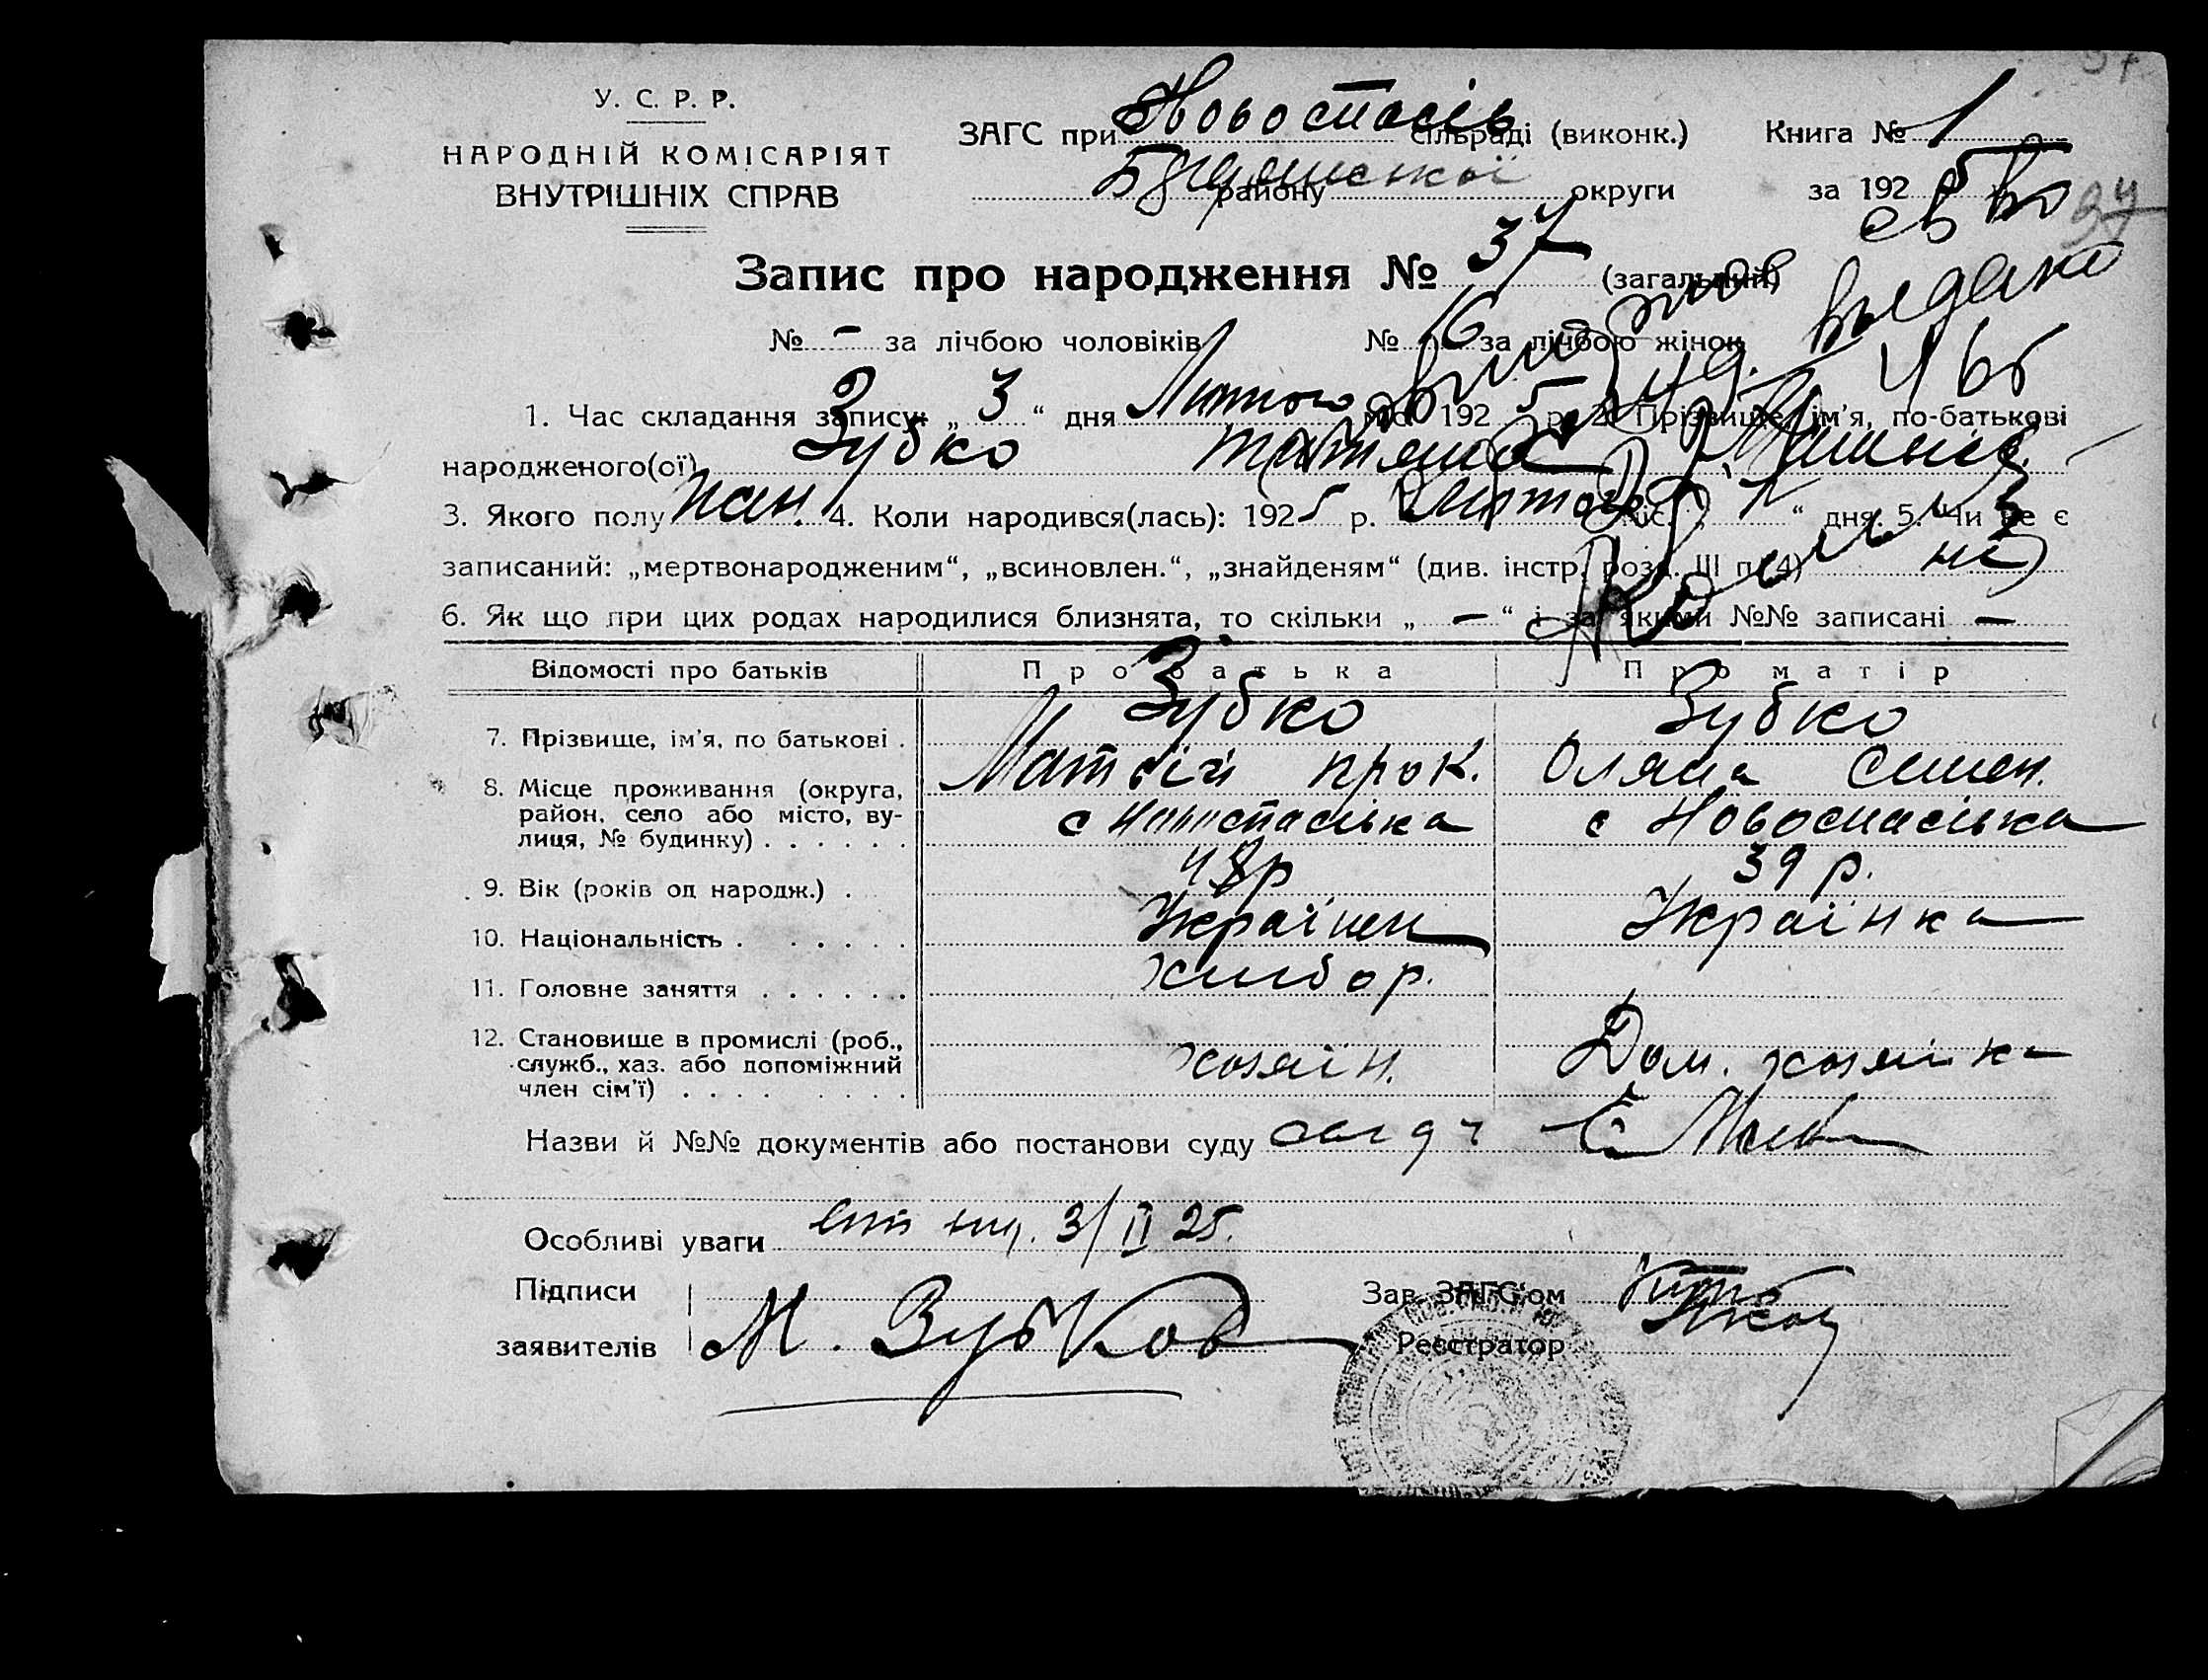 У. С. Р. Р.
НАРОДНІЙ КОМІСАРІЯТ
ВНУТРІШНІХ СПРАВ
ЗАГС при Новоспасів сільраді (виконк.) Книга № 1
району округи за 1925
св во
37
Запис про народження № 37 (загальний)
видано
№ – за лічбою чоловіків № 16 за лічбою жінок
1. Час складання запису: „ 3 “ дня Лютого міс. 192 5 р. 2. Прізвище, ім'я, по-батькові
народженого(ої) Зубко
3. Якого полу жін. 4. Коли народився(лась): 1925 р. Лютого міс. „ 1 “ дня. 5. Чи не є
записаний: „мертвонародженим“, „всиновлен.“, „знайденям“ (див. інстр. розд. III п. 4) ні
6. Як що при цих родах народилися близнята, то скільки „ — “ і за якими №№ записані —
Відомості про батьків Про батька Про матір
7. Прізвище, ім'я, по батькові . Зубко Зубко
Матвій Прок. Оляна Семен.
8. Місце проживання (округа,
район, село або місто, ву-
лиця, № будинку) . . . . . . с Новоспасівка с Новоспасівка
9. Вік (років од народж.) . 48р 39 р.
10. Національність . . . . . . Українец Українка
11. Головне заняття . . . . . . хлибор.
12. Становище в промислі (роб.,
служб., хаз. або допоміжний
член сім'ї) . . . . . . . . хозяїн. Дом. хозяйка
Назви й №№ документів або постанови суду
Особливі уваги 3/II 25.
Підписи
заявителів М. Зубков
Зав. ЗАГС'ом
Реєстратор